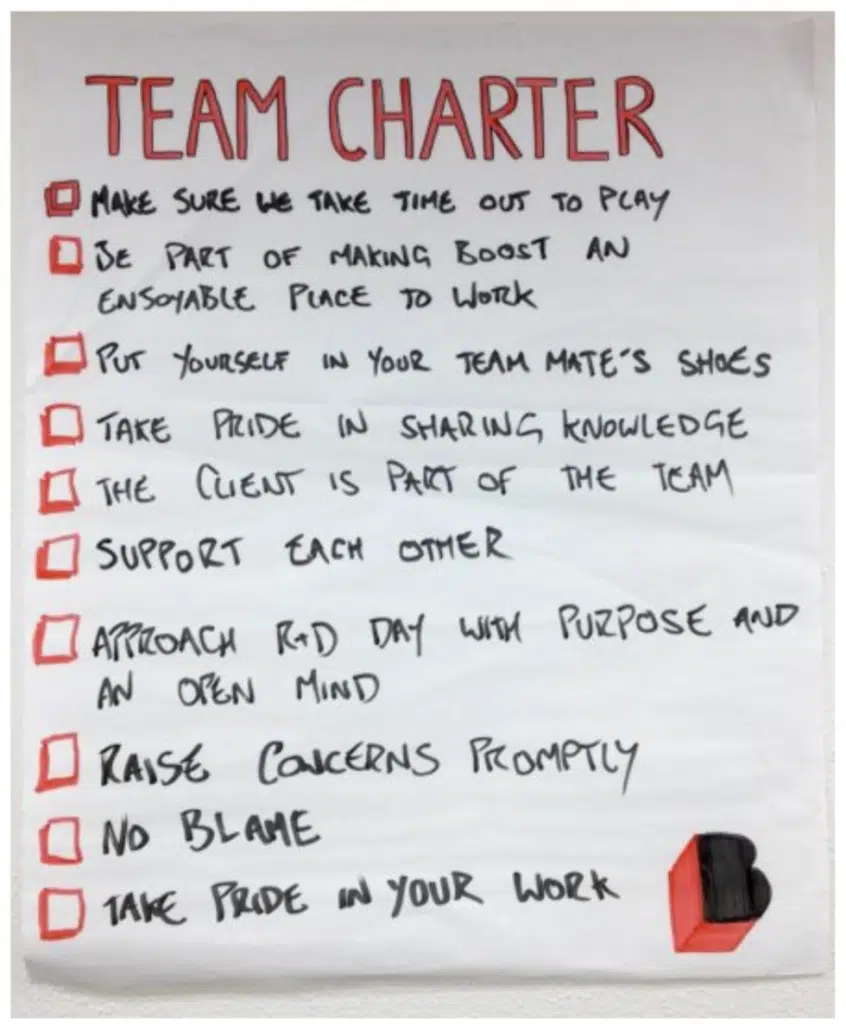 TEAM CHARTER
MAKE SURE WE TAKE TIME OUT TO PLAY
BE PART OF MAKING BOOST AN
ENJOYABLE PLACE TO WORK
PUT YOURSELF IN YOUR TEAM MATE'S SHOES
TAKE PRIDE IN SHARING KNOWLEDGE
THE CLIENT IS PART OF THE TEAM
SUPPORT EACH OTHER
APPROACH R+D DAY WITH PURPOSE AND
AN OPEN MIND
RAISE CONCERNS PROMPTLY
NO BLAME
TAKE PRIDE IN YOUR WORK
B